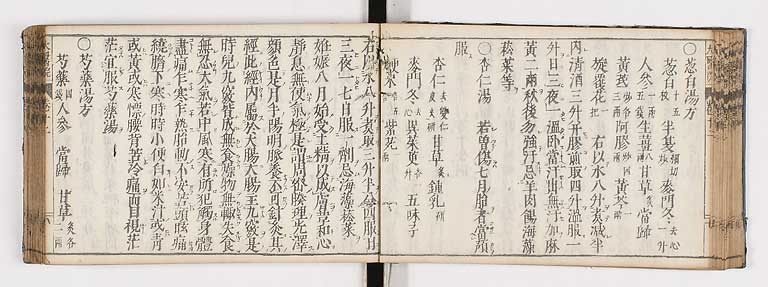 ○葱白湯方
葱白 十四莖 細切 半夏 麥門冬 去心各一升
人參 一兩半 生薑 八兩 甘草 炙 當歸
黃芪 各三兩 阿膠 四兩 黃芩 一兩
旋覆花 一把 右以水八升煮減半
內清酒三升并膠煎取四升溫服一
升日三夜一溫臥當汗出無汗加麻
黃二兩秋後勿強汗忌羊肉餳海藻
菘菜等
○杏仁湯 若曽傷七月胎者當預
服
杏仁 甘草 炙 鍾乳 研
麥門冬 去心 吳茱萸 各一升 五味子
粳米 五合 紫菀 一兩
右以水八升煮取三升半分四服日
三夜一七日服一劑忌海藻菘菜
妊娠八月始受土精以成膚革和心
靜息無使氣極是謂周密腠理光澤
顏色是月手陽明脉養不可針灸其
經此經內屬於大腸大腸主九竅是
時兒九竅皆成無食燥物無輒失食
無忍大氣若中風寒有所犯觸身體
盡痛乍寒乍熱胎動不安苦頭眩痛
繞臍下寒時時小便白如米汁或青
或黃或寒慄腰背苦冷痛而目視茫
茫宜服芍藥湯
○芍藥湯方
芍藥 四兩 人參 當歸 甘草 炙各二兩